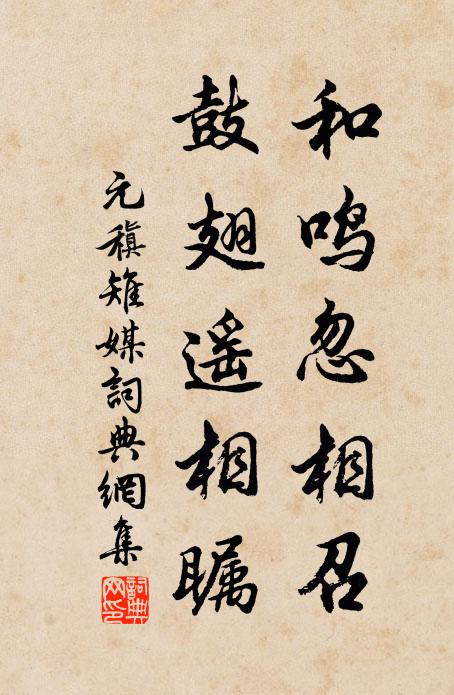 和鸣忽相召
鼓翅遥相瞩
元稹雉媒詞典網集
詞典
网印